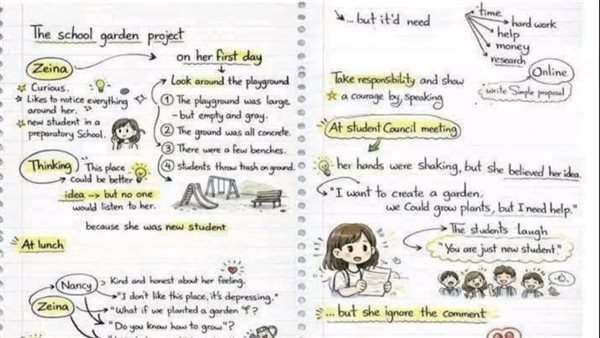 The school garden project
Zeina
Curious.
Likes to notice everything
around her.
new student in a
preparatory School.
on her first day
Look around the playground
① The playground was large
- but empty and gray.
② The ground was all concrete.
③ There were a few benches.
④ students throw trash on ground.
Thinking
This place
could be better
idea → but no one
would listen to her.
because she was new student
At lunch
Nancy
Kind and honest about her feeling.
Zeina
"I don't like this place, it's depressing."
"What if we planted a garden"?
"Do you know how to grow"?
...but it'd need
time
hard work
help
money
research
Online
write simple proposal
Take responsibility and show
a courage by speaking
At student Council meeting
her hands were shaking, but she believed her idea.
"I want to create a garden,
we Could grow plants, but I need help."
The students laugh
"You are just new student"
...but she ignore the comment